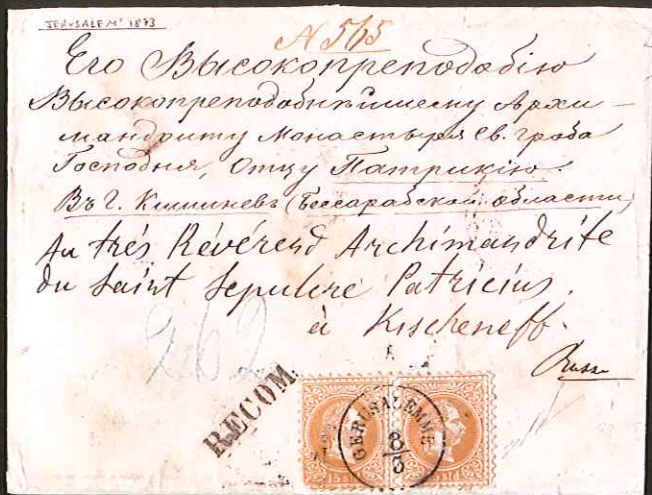 JERUSALEM' 1873
N 565
Его Высокопреподобію
Высокопреподобнѣйшему Архи-
мандриту Монастыря Св. Гроба
Господня, Отцу Патрикію.
Въ г. Кишиневъ (Бессарабской области)
Au très Révérend Archimandrite
du Saint Sepulcre Patricius.
à Kischeneff.
262
RECOM.
GERUSALEMME
8/3
15